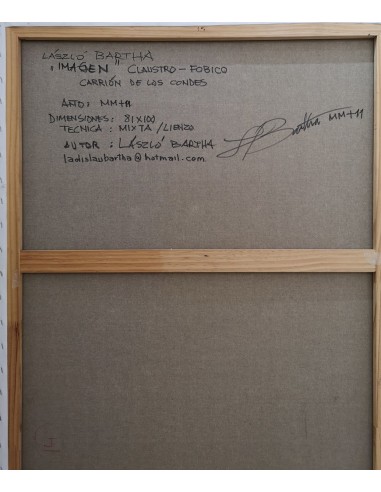 15
LÁSZLÓ BARTHA
"IMAGEN" CLAUSTRO-FOBICO
CARRIÓN DE LOS CONDES
AÑO: MM+11
DIMENSIONES: 81X100
TECNICA: MIXTA/LIENZO
AUTOR: LÁSZLÓ BARTHA
ladislaubartha@hotmail.com
Bartha MM+11